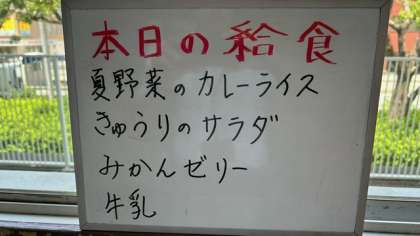 本日の給食
夏野菜のカレーライス
きゅうりのサラダ
みかんゼリー
牛乳